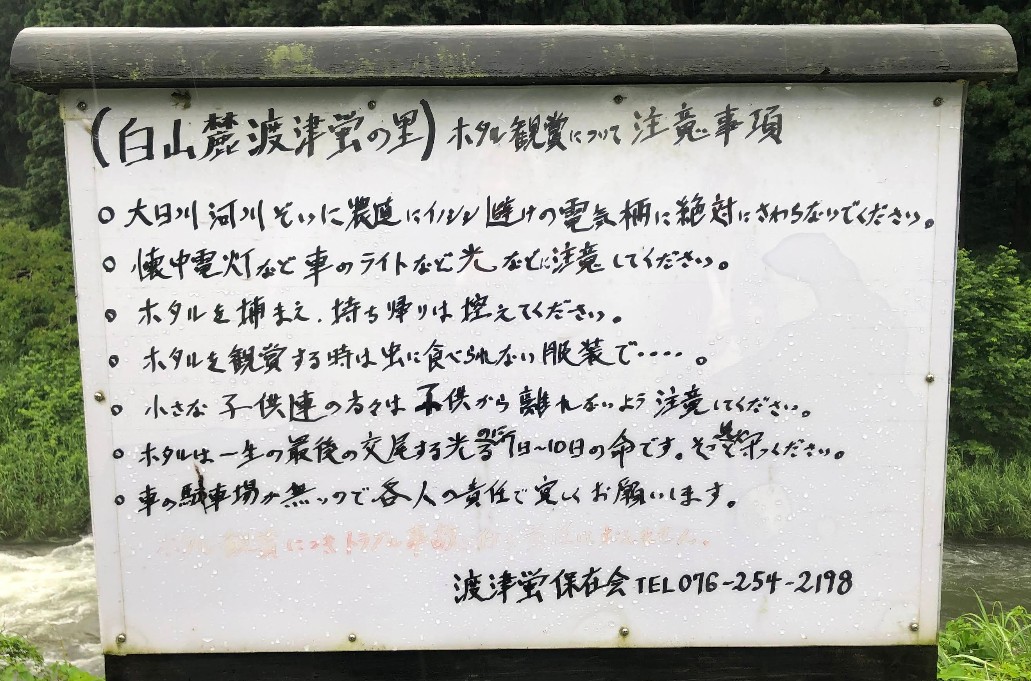 (白山麓渡津蛍の里)ホタル観賞について注意事項
○大日川河川ぞいに農道にイノシシ避けの電気柵に絶対にさわらないでください。
○懐中電灯など車のライトなど光などに注意してください。
○ホタルを捕まえ、持ち帰りは控えてください。
○ホタルを観賞する時は虫に食べられない服装で‥‥。
○小さな子供連の方々は子供から離れないよう注意してください。
○ホタルは一生の最後の交尾する光 7日〜10日の命です。そっと ください。
○車の駐車場が無いので各人の責任で宜しくお願いします。
につき トラブル
渡津蛍保存会TEL076-254-2198